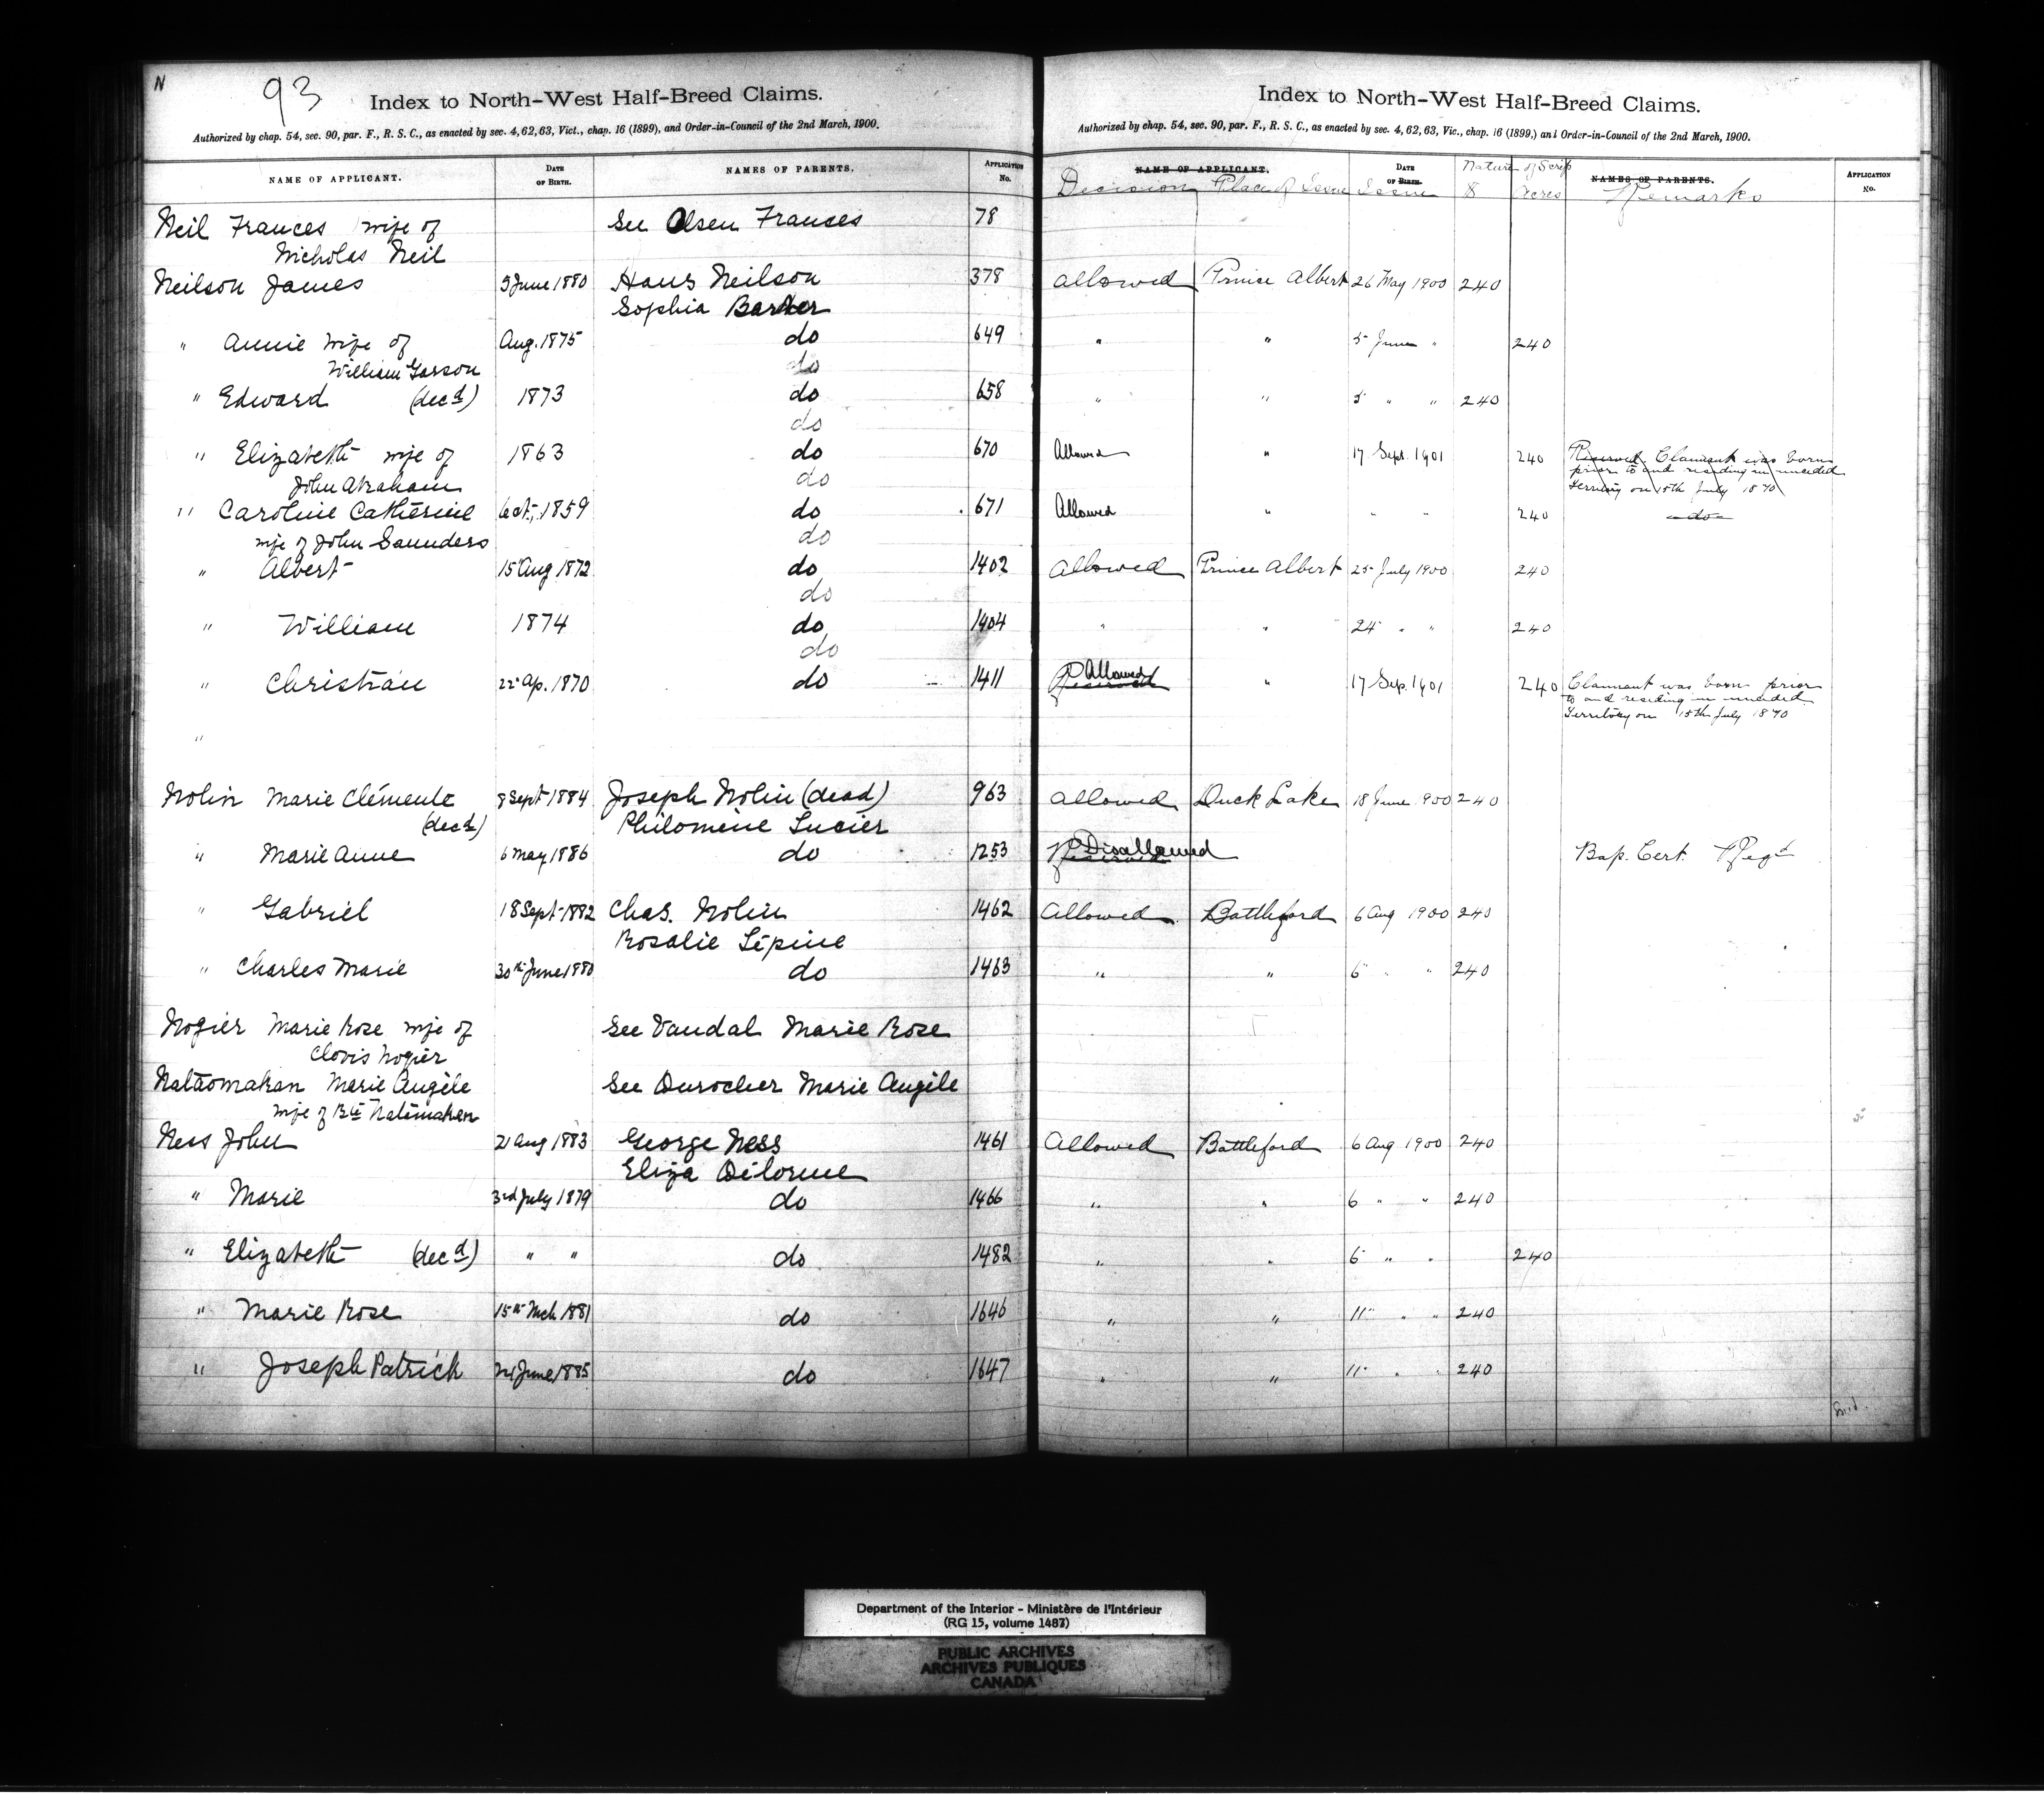 N
93
Index to North-West Half-Breed Claims.
Authorized by chap. 54, sec. 90, par. F., R. S. C., as enacted by sec. 4, 62, 63, Vict., chap. 16 (1899), and Order-in-Council of the 2nd March, 1900.
NAME OF APPLICANT. DATE OF BIRTH. NAMES OF PARENTS. APPLICATION No.
Neil Frances wife of See Olsen Frances 78
Nicholas Neil
Neilson James 5 June 1880 Hans Neilson 378
Sophia Barker
" Annie wife of Aug. 1875 do 649
William Garson do
" Edward (decd) 1873 do 658
do
" Elizabeth wife of 1863 do 670
John Abraham do
" Caroline Catherine Oct., 1859 do 671
wife of John Saunders do
" Albert 15 Aug 1872 do 1402
do
" William 1874 do 1404
do
" Christian 22 Ap. 1870 do 1411
"
Nolin Marie Clémente 8 Sept 1884 Joseph Nolin (dead) 963
(decd) Philomène Lucier
" Marie Anne 6 May 1886 do 1253
" Gabriel 18 Sept 1882 Chas. Nolin 1462
Rosalie Lépine
" Charles Marie 30th June 1880 do 1463
Nogier Marie Rose wife of See Vandal Marie Rose
Clovis Nogier
Natāomakan Marie Angèle See Durocher Marie Angèle
wife of Bte Natomaken
Ness John 21 Aug 1883 George Ness 1461
Eliza Delorme
" Marie 3rd July 1879 do 1466
" Elizabeth (decd) " " do 1482
" Marie Rose 15th Mch 1881 do 1646
" Joseph Patrick 24 June 1885 do 1647
Index to North-West Half-Breed Claims.
Authorized by chap. 54, sec. 90, par. F., R. S. C., as enacted by sec. 4, 62, 63, Vic., chap. 16 (1899,) and Order-in-Council of the 2nd March, 1900.
NAME OF APPLICANT. DATE OF BIRTH. Nature of Scrip NAMES OF PARENTS. APPLICATION No.
Decision Place of Issue Issue $ Acres Remarks
Allowed Prince Albert 26 May 1900 240
" " 5 June " 240
" " 5 " " 240
Allowed " 17 Sept. 1901 240 Reserved. Claimant was born
prior to and residing in unceded
Territory on 15th July 1870
Allowed " " " 240 do
Allowed Prince Albert 25 July 1900 240
" " 24 " " 240
Allowed
Reserved " 17 Sep. 1901 240 Claimant was born prior
to and residing in unceded
Territory on 15th July 1870
Allowed Duck Lake 18 June 1900 240
Disallowed
Reserved Bap. Cert. Reqd
Allowed Battleford 6 Aug 1900 240
" " 6 " " 240
Allowed Battleford 6 Aug 1900 240
" " 6 " " 240
" " 6 " " 240
" " 11 " " 240
" " 11 " " 240
Department of the Interior - Ministère de l'Intérieur
(RG 15, volume 1487)
PUBLIC ARCHIVES
ARCHIVES PUBLIQUES
CANADA